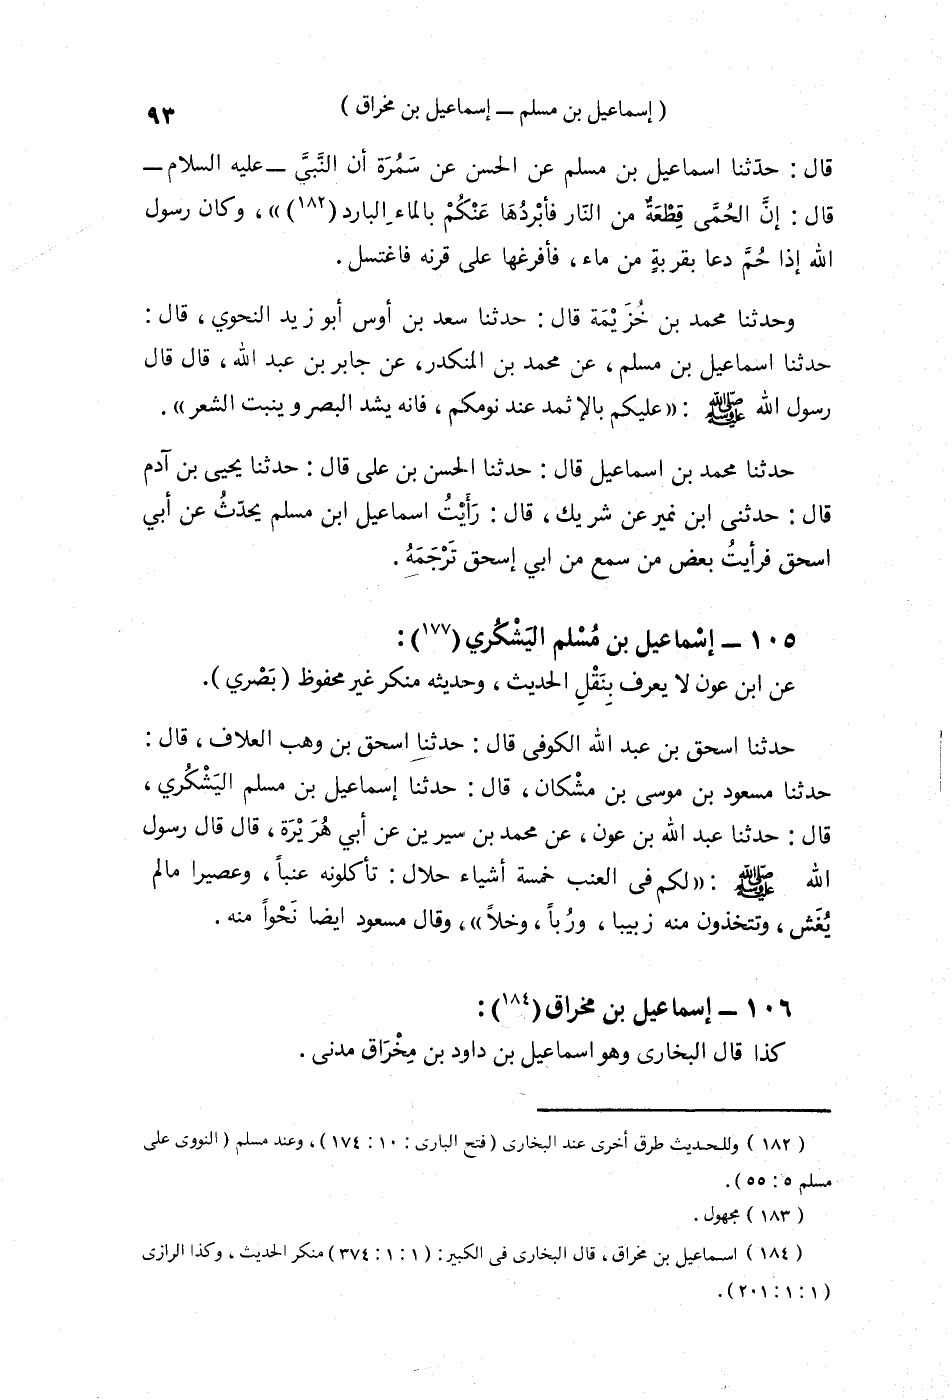 ( إسماعيل بن مسلم ــ إسماعيل بن مخراق ) ٩٣
قال : حدّثنا اسماعيل بن مسلم عن الحسن عن سَمُرَة أن النَّبيَّ ــ عليه السلام ــ
قال : إنَّ الحُمَّى قِطْعَةٌ من النّار فأبْردُهَا عَنْكُمْ بالماءِ البارد (١٨٢) » ، وكان رسول
الله إذا حُمَّ دعا بقربةٍ من ماء ، فأفرغها على قرنه فاغتسل .
وحدثنا محمد بن خُزَيْمَة قال : حدثنا سعد بن أوس أبو زيد النحوي ، قال :
حدثنا اسماعيل بن مسلم ، عن محمد بن المنكدر، عن جابر بن عبد الله ، قال قال
رسول الله ﷺ : «عليكم بالإثمد عند نومكم ، فانه يشد البصر وينبت الشعر» .
حدثنا محمد بن اسماعيل قال : حدثنا الحسن بن على قال : حدثنا يحيى بن آدم
قال : حدثنى ابن نمير عن شريك ، قال : رَأَيْتُ اسماعيل ابن مسلم يحدّثُ عن أبي
اسحق فرأيتُ بعض من سمع من ابي إسحق تَرْجَمَهُ .
١٠٥ ــ إسْماعيل بن مُسْلم اليَشْكُري (١٧٧) :
عن ابن عون لا يعرف بِنَقْلِ الحديث ، وحديثه منكر غير محفوظ ( بَصْري ).
حدثنا اسحق بن عبد الله الكوفى قال : حدثنا اسحق بن وهب العلاف ، قال :
حدثنا مسعود بن موسى بن مشْكان ، قال : حدثنا إسماعيل بن مسلم اليَشْكُري ،
قال : حدثنا عبد الله بن عون ، عن محمد بن سيرين عن أبي هُرَيْرَة ، قال قال رسول
الله ﷺ : «لكم فى العنب خمسة أشياء حلال : تأكلونه عنباً ، وعصيرا مالم
يُغَش ، وتتخذون منه زبيبا ، ورُباً ، وخلاً» ، وقال مسعود ايضا نَحْواً منه .
١٠٦ ــ إسماعيل بن مخراق (١٨٤) :
كذا قال البخارى وهو اسماعيل بن داود بن مِخْرَاق مدنى .
( ١٨٢ ) وللحديث طرق أخرى عند البخارى ( فتح البارى : ١٠ : ١٧٤ ) ، وعند مسلم ( النووى على
مسلم ٥ : ٥٥ ) .
( ١٨٣ ) مجهول .
( ١٨٤ ) اسماعيل بن مخراق ، قال البخارى فى الكبير : ( ١ : ١ : ٣٧٤ ) منكر الحديث ، وكذا الرازى
( ١ : ١ : ٢٠١ ) .